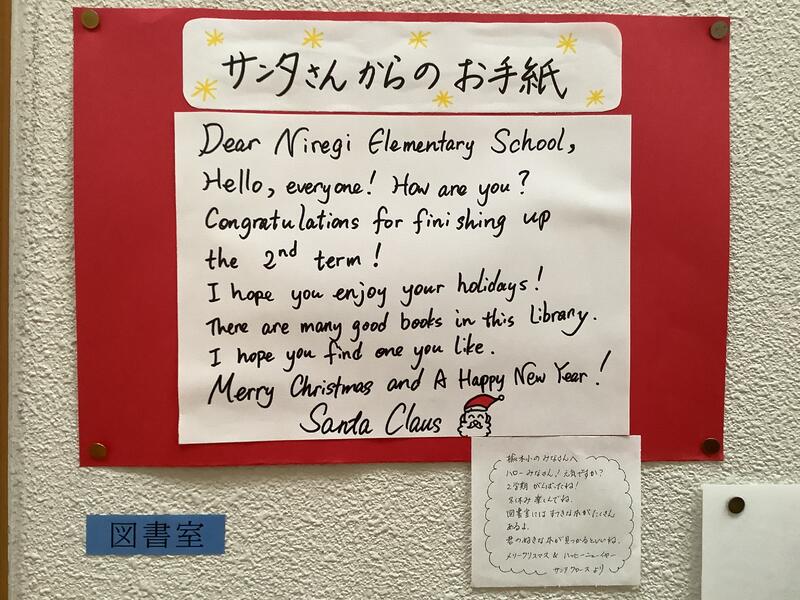 サンタさんからのお手紙
Dear Niregi Elementary School,
Hello, everyone! How are you?
Congratulations for finishing up
the 2nd term!
I hope you enjoy your holidays!
There are many good books in this library.
I hope you find one you like.
Merry Christmas and A Happy New Year!
Santa Claus
楡木小のみなさんへ
ハローみなさん!元気ですか?
2学期がんばったね!
冬休み楽しんでね。
図書室にはすてきな本がたくさん
あるよ。
君の好きな本が見つかるといいね。
メリークリスマス & ハッピーニューイヤー
サンタクロースより
図書室